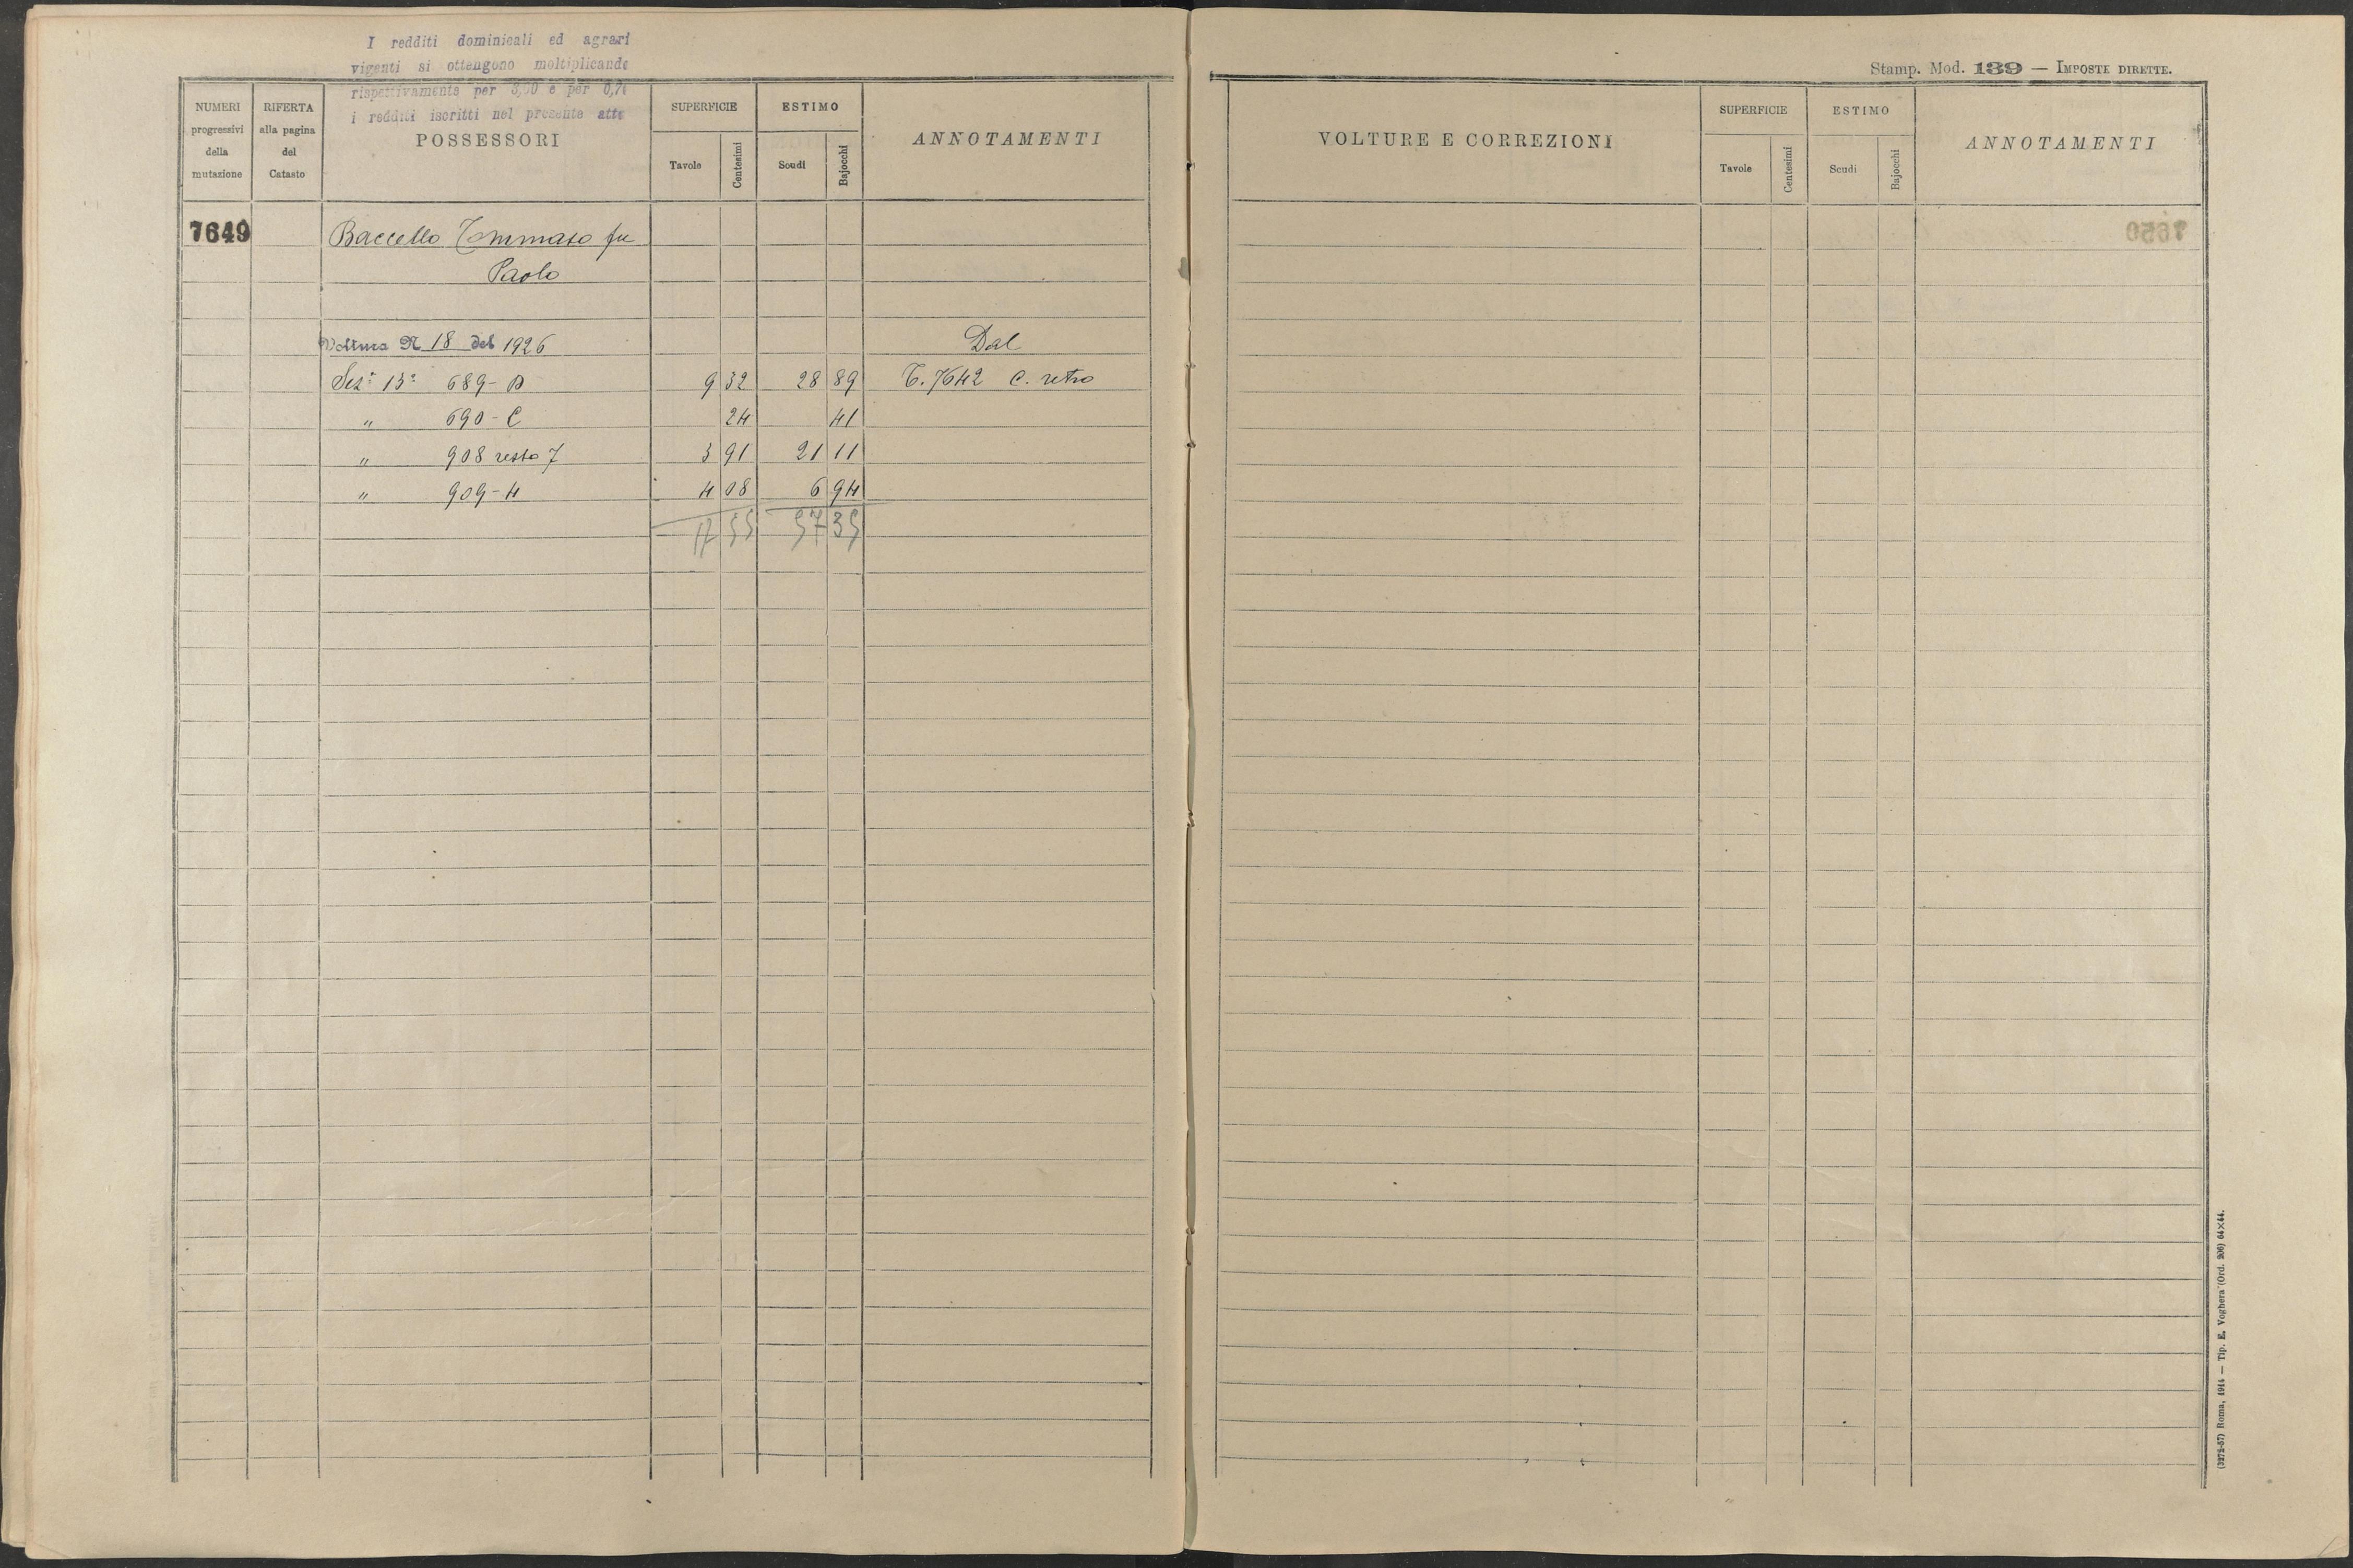 I redditi dominicali ed agrari
vigenti si ottengono moltiplicando
rispettivamente per 3,00 e per 0,70
i redditi iscritti nel presente atto
Stamp. Mod. 139 — IMPOSTE DIRETTE.
NUMERI progressivi della mutazione
RIFERTA alla pagina del Catasto
POSSESSORI
SUPERFICIE
Tavole
Centesimi
ESTIMO
Scudi
Bajocchi
ANNOTAMENTI
VOLTURE E CORREZIONI
SUPERFICIE
Tavole
Centesimi
ESTIMO
Scudi
Bajocchi
ANNOTAMENTI
7649 Baccello Tommaso fu
Paolo
Voltura N 18 del 1926 Dal
Sez. 13ª 689-D 9 32 28 89 C. 7642 C. retro
" 690-C 24 41
" 908 resto 7 3 91 21 11
" 909-H 4 08 6 94
17 55 57 35
(3272-57) Roma, 1914 — Tip. E. Voghera (Ord. 206) 64×44.